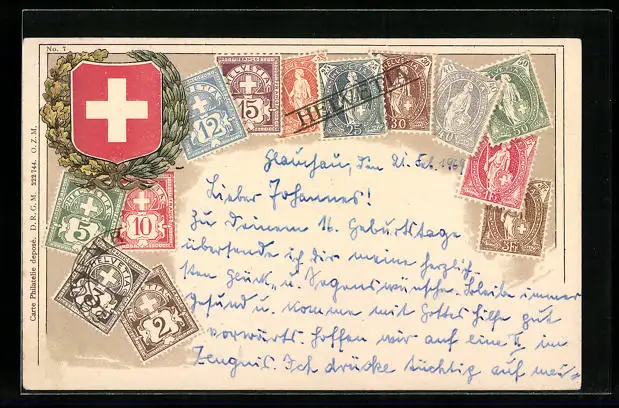 No. 7
HELVETIA
FRANCO
HELVETIA
12
15
25
30
40
50
HELVETIA
5
10
3
2
1 Fr
3 Fr.
Carte Philatelie deposé. D. R. G. M. 222744. O. Z. M.
Glauchau, den 21. Feb. 1961
Lieber Johannes!
Zu Deinem 11. Geburtstage
übersende ich dir meine herzlich-
sten Glück- u. Segenswünsche. Bleibe immer
gesund u. komme mit Gottes Hilfe gut
vorwärts. Hoffen wir auf eine II im
Zeugnis. Ich drücke tüchtig auf